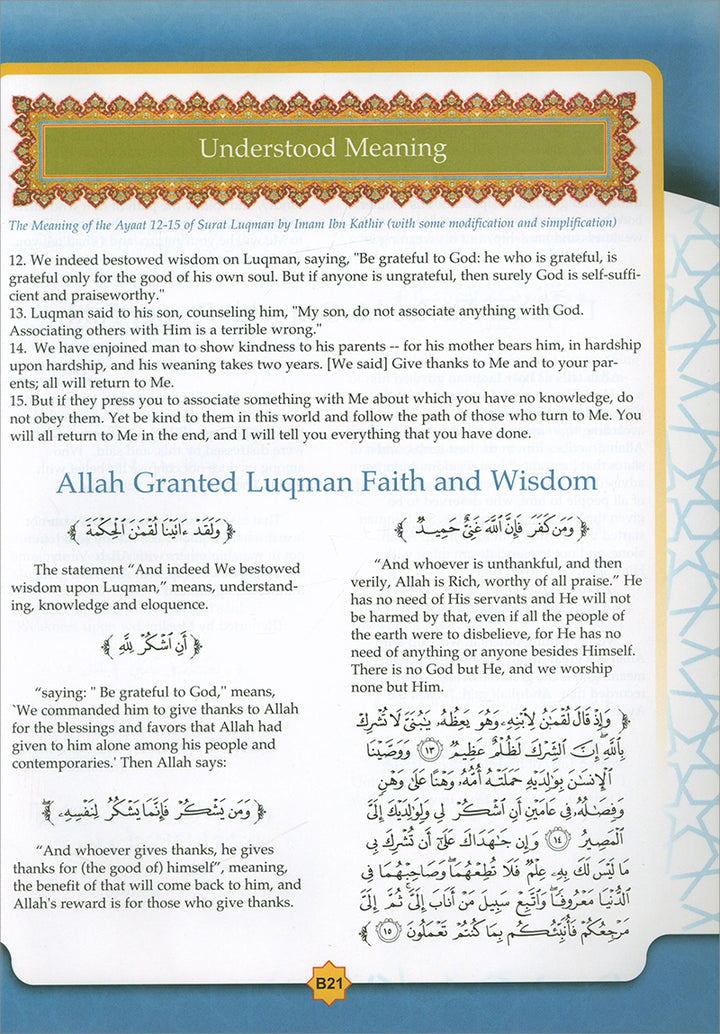 Understood Meaning
The Meaning of the Ayaat 12-15 of Surat Luqman by Imam Ibn Kathir (with some modification and simplification)
12. We indeed bestowed wisdom on Luqman, saying, "Be grateful to God: he who is grateful, is
grateful only for the good of his own soul. But if anyone is ungrateful, then surely God is self-suffi-
cient and praiseworthy."
13. Luqman said to his son, counseling him, "My son, do not associate anything with God.
Associating others with Him is a terrible wrong."
14. We have enjoined man to show kindness to his parents -- for his mother bears him, in hardship
upon hardship, and his weaning takes two years. [We said] Give thanks to Me and to your par-
ents; all will return to Me.
15. But if they press you to associate something with Me about which you have no knowledge, do
not obey them. Yet be kind to them in this world and follow the path of those who turn to Me. You
will all return to Me in the end, and I will tell you everything that you have done.
Allah Granted Luqman Faith and Wisdom
﴿ وَلَقَدْ ءَاتَيْنَا لُقْمَٰنَ ٱلْحِكْمَةَ ﴾
The statement “And indeed We bestowed
wisdom upon Luqman,” means, understand-
ing, knowledge and eloquence.
﴿ أَنِ ٱشْكُرْ لِلَّهِ ﴾
“saying: " Be grateful to God," means,
`We commanded him to give thanks to Allah
for the blessings and favors that Allah had
given to him alone among his people and
contemporaries.' Then Allah says:
﴿ وَمَن يَشْكُرْ فَإِنَّمَا يَشْكُرُ لِنَفْسِهِۦ ۖ ﴾
“And whoever gives thanks, he gives
thanks for (the good of) himself”, meaning,
the benefit of that will come back to him, and
Allah's reward is for those who give thanks.
﴿ وَمَن كَفَرَ فَإِنَّ ٱللَّهَ غَنِىٌّ حَمِيدٌ ﴾
“And whoever is unthankful, and then
verily, Allah is Rich, worthy of all praise.” He
has no need of His servants and He will not
be harmed by that, even if all the people of
the earth were to disbelieve, for He has no
need of anything or anyone besides Himself.
There is no God but He, and we worship
none but Him.
﴿ وَإِذْ قَالَ لُقْمَٰنُ لِٱبْنِهِۦ وَهُوَ يَعِظُهُۥ يَٰبُنَىَّ لَا تُشْرِكْ
بِٱللَّهِ ۖ إِنَّ ٱلشِّرْكَ لَظُلْمٌ عَظِيمٌ ١٣ وَوَصَّيْنَا
ٱلْإِنسَٰنَ بِوَٰلِدَيْهِ حَمَلَتْهُ أُمُّهُۥ وَهْنًا عَلَىٰ وَهْنٍ
وَفِصَٰلُهُۥ فِى عَامَيْنِ أَنِ ٱشْكُرْ لِى وَلِوَٰلِدَيْكَ إِلَىَّ
ٱلْمَصِيرُ ١٤ وَإِن جَٰهَدَاكَ عَلَىٰٓ أَن تُشْرِكَ بِى
مَا لَيْسَ لَكَ بِهِۦ عِلْمٌ فَلَا تُطِعْهُمَا ۖ وَصَاحِبْهُمَا فِى
ٱلدُّنْيَا مَعْرُوفًا ۖ وَٱتَّبِعْ سَبِيلَ مَنْ أَنَابَ إِلَىَّ ۚ ثُمَّ إِلَىَّ
مَرْجِعُكُمْ فَأُنَبِّئُكُم بِمَا كُنتُمْ تَعْمَلُونَ ١٥ ﴾
B21